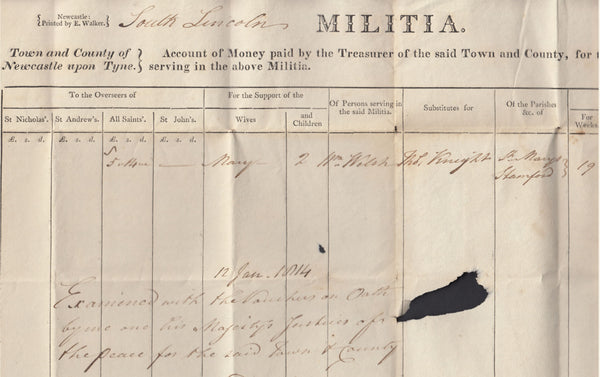 Newcastle:
Printed by E. Walker.
South Lincoln
MILITIA.
Town and County of
Newcastle upon Tyne.
Account of Money paid by the Treasurer of the said Town and County, for
serving in the above Militia.
To the Overseers of
For the Support of the
Of Persons serving in
the said Militia.
Substitutes for
Of the Parishes
&c. of
For
Weeks
St Nicholas's.
St Andrew's.
All Saints'.
St John's.
Wives
and
Children
£. s. d.
£. s. d.
£. s. d.
£. s. d.
Mary
2
Wm Welsh
Thos. Knight
St. Marys
Stamford
19
12 Jan. 1814
Examined with the Vouchers on Oath
by me one his Majesty's Justices of
the peace for the said Town & County